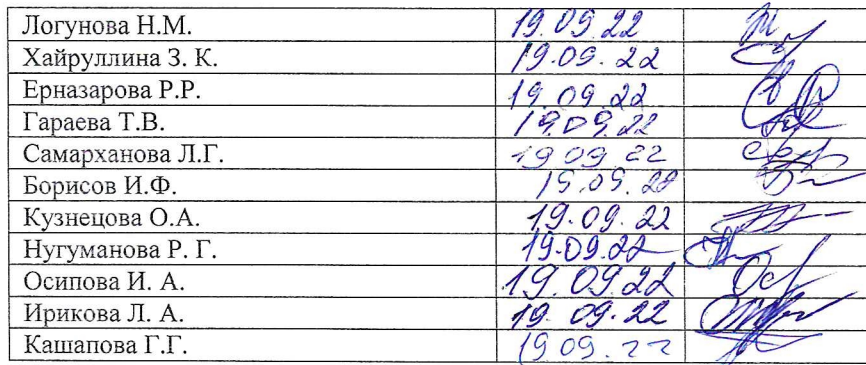 Логунова Н.М. 19.09.22
Хайруллина З. К. 19.09.22
Ерназарова Р.Р. 19.09.22
Гараева Т.В. 19.09.22
Самарханова Л.Г. 19 09 22
Борисов И.Ф. 19.09.22
Кузнецова О.А. 19.09.22
Нугуманова Р. Г. 19.09.22
Осипова И. А. 19.09.22
Ирикова Л. А. 19.09.22
Кашапова Г.Г. 19 09.22